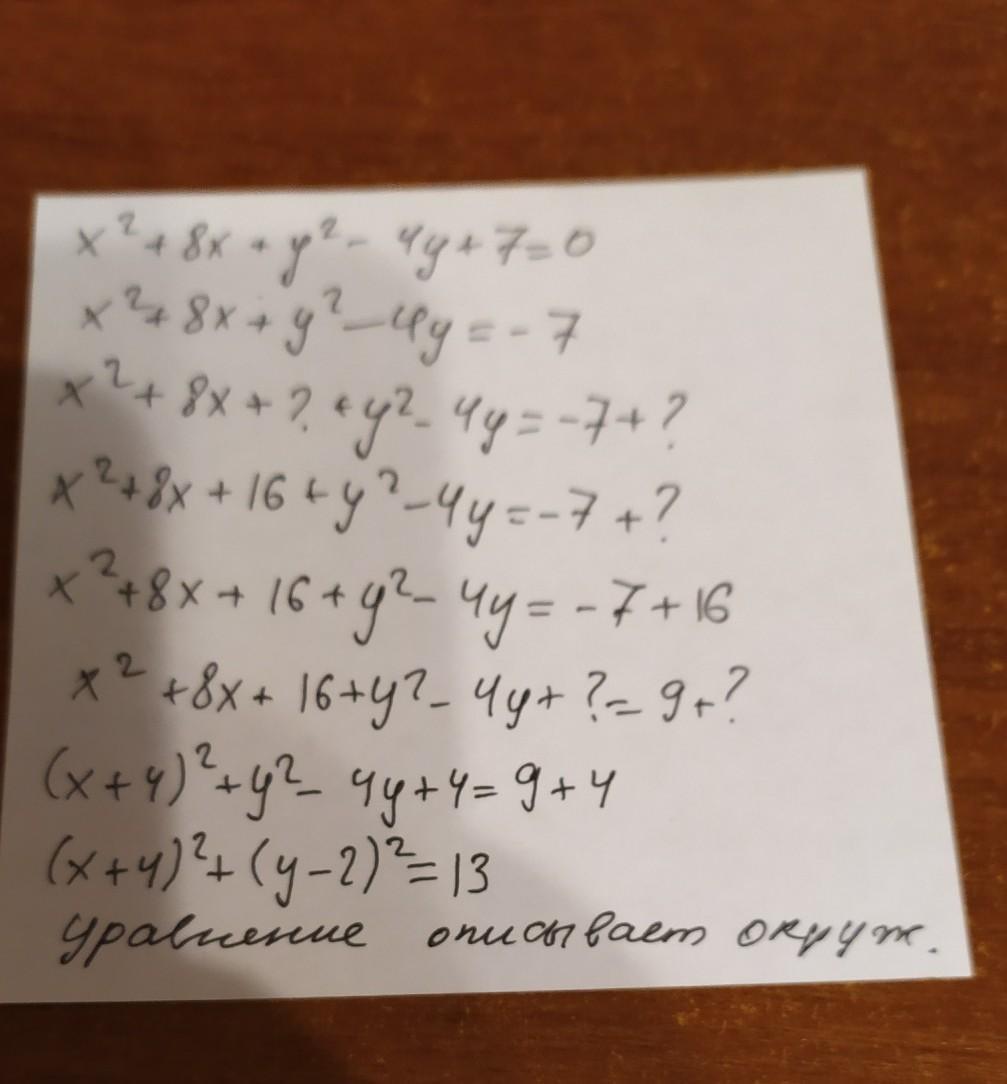 x²+8x+y²-4y+7=0
x²+8x+y²-4y=-7
x²+8x+?+y²-4y=-7+?
x²+8x+16+y²-4y=-7+?
x²+8x+16+y²-4y=-7+16
x²+8x+16+y²-4y+?=9+?
(x+4)²+y²-4y+4=9+4
(x+4)²+(y-2)²=13
уравнение описывает окруж.